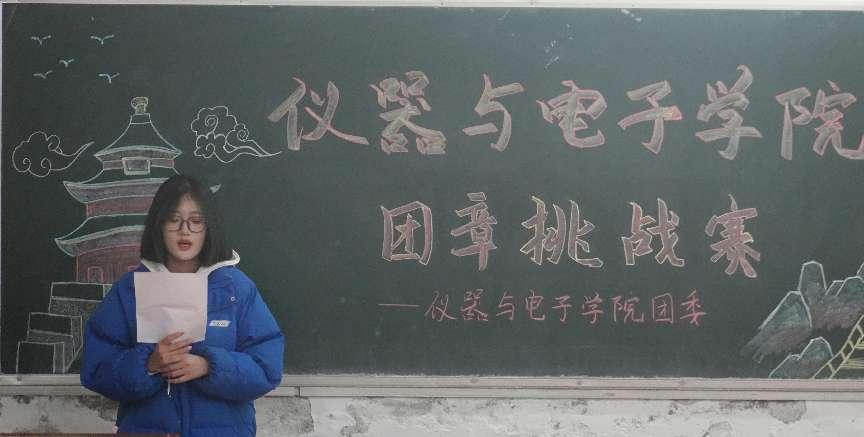 仪器与电子学院
团章挑战赛
——仪器与电子学院团委